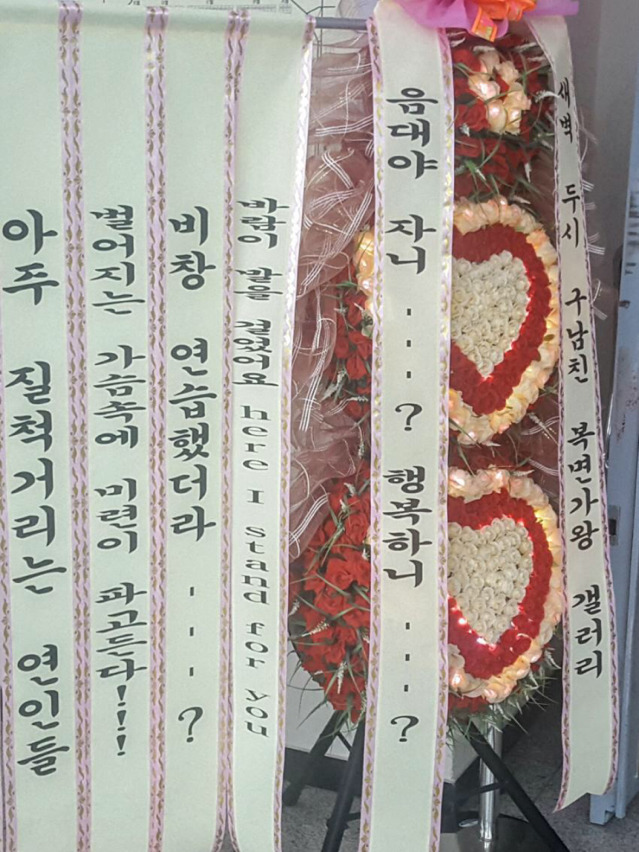 아주 질척거리는 연인들
벌어지는 가슴속에 미련이 파고든다!!!
비창 연습했더라 - - - ?
바람이 말을 걸었어요 here I stand for you
음대야 자니 - - - ? 행복하니 - - - ?
새벽 두시 구남친 복면가왕 갤러리